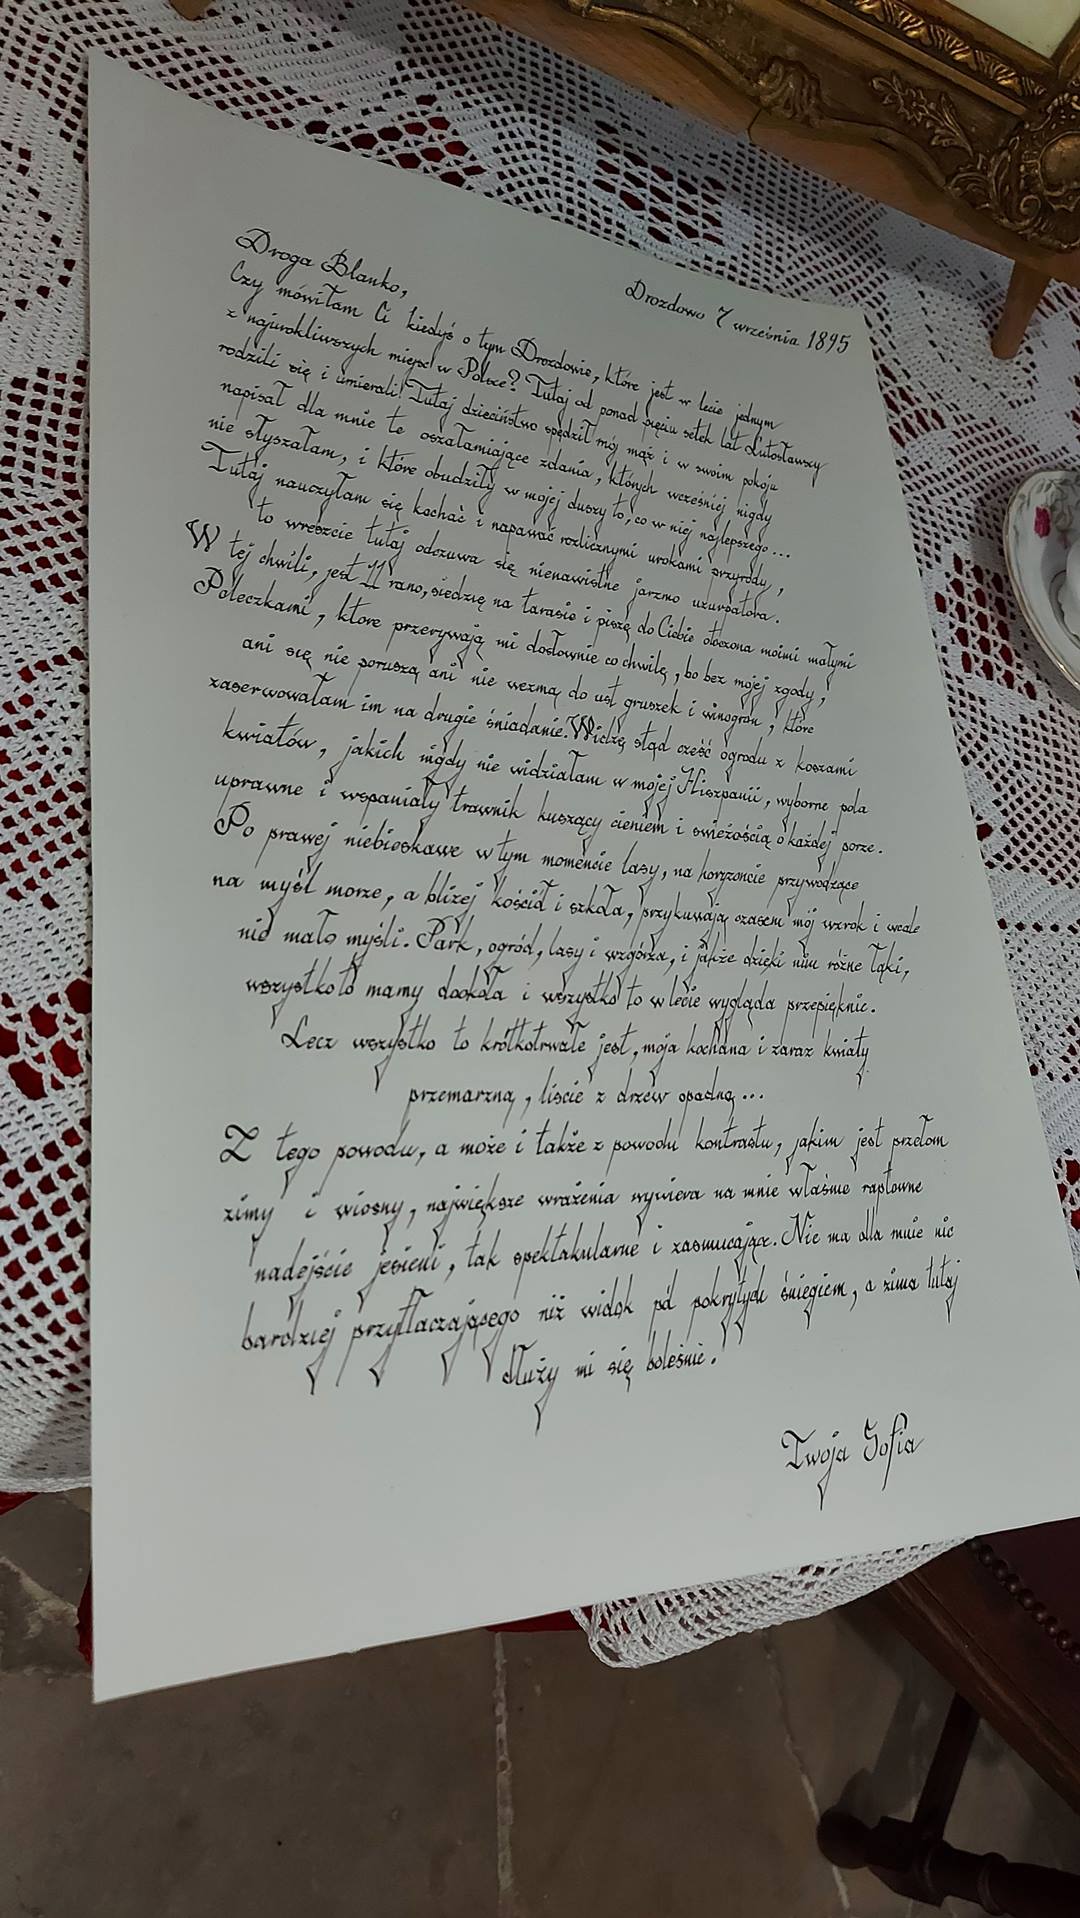 Drozdowo 7 września 1895
Droga Blanko,
Czy mówiłam Ci kiedyś o tym Drozdowie, które jest w lecie jednym
z najurokliwszych miejsc w Polsce? Tutaj od ponad pięciu setek lat Lutosławscy
rodzili się i umierali! Tutaj dzieciństwo spędził mój mąż i w swoim pokoju
napisał dla mnie te oszałamiające zdania, których wcześniej nigdy
nie słyszałam, i które obudziły w mojej duszy to, co w niej najlepszego...
Tutaj nauczyłam się kochać i napawać rozlicznymi urokami przyrody,
to wreszcie tutaj odczuwa się nienawistne jarzmo uzurpatora.
W tej chwili, jest 11 rano, siedzię na tarasie i piszę do Ciebie otoczona moimi małymi
Poleczkami, które przerywają mi dosłownie co chwilę, bo bez mojej zgody,
ani się nie poruszą ani nie wezmą do ust gruszek i winogron, które
zaserwowałam im na drugie śniadanie. Widzę stąd cześć ogrodu z koszami
kwiatów, jakich nigdy nie widziałam w mojej Hiszpanii, wyborne pola
uprawne i wspaniały trawnik kuszący cieniem i świeżością o każdej porze.
Po prawej niebieskawe w tym momencie lasy, na horyzoncie przywodzące
na myśl morze, a bliżej kościół i szkoła, przykuwają czasem mój wzrok i wcale
nie mało myśli. Park, ogród, lasy i wzgórza, i jakże dzięki nim różne łąki,
wszystko to mamy dookoła i wszystko to w lecie wygląda przepięknie.
Lecz wszystko to krótkotrwałe jest, moja kochana i zaraz kwiaty
przemarzną, liście z drzew opadną...
Z tego powodu, a może i także z powodu kontrastu, jakim jest przełom
zimy i wiosny, największe wrażenia wywiera na mnie właśnie raptowne
nadejście jesieni, tak spektakularne i zasmucające. Nie ma dla mnie nic
bardziej przytłaczającego niż widok pól pokrytych śniegiem, a zima tutaj
dłuży mi się boleśnie.
Twoja Sofia